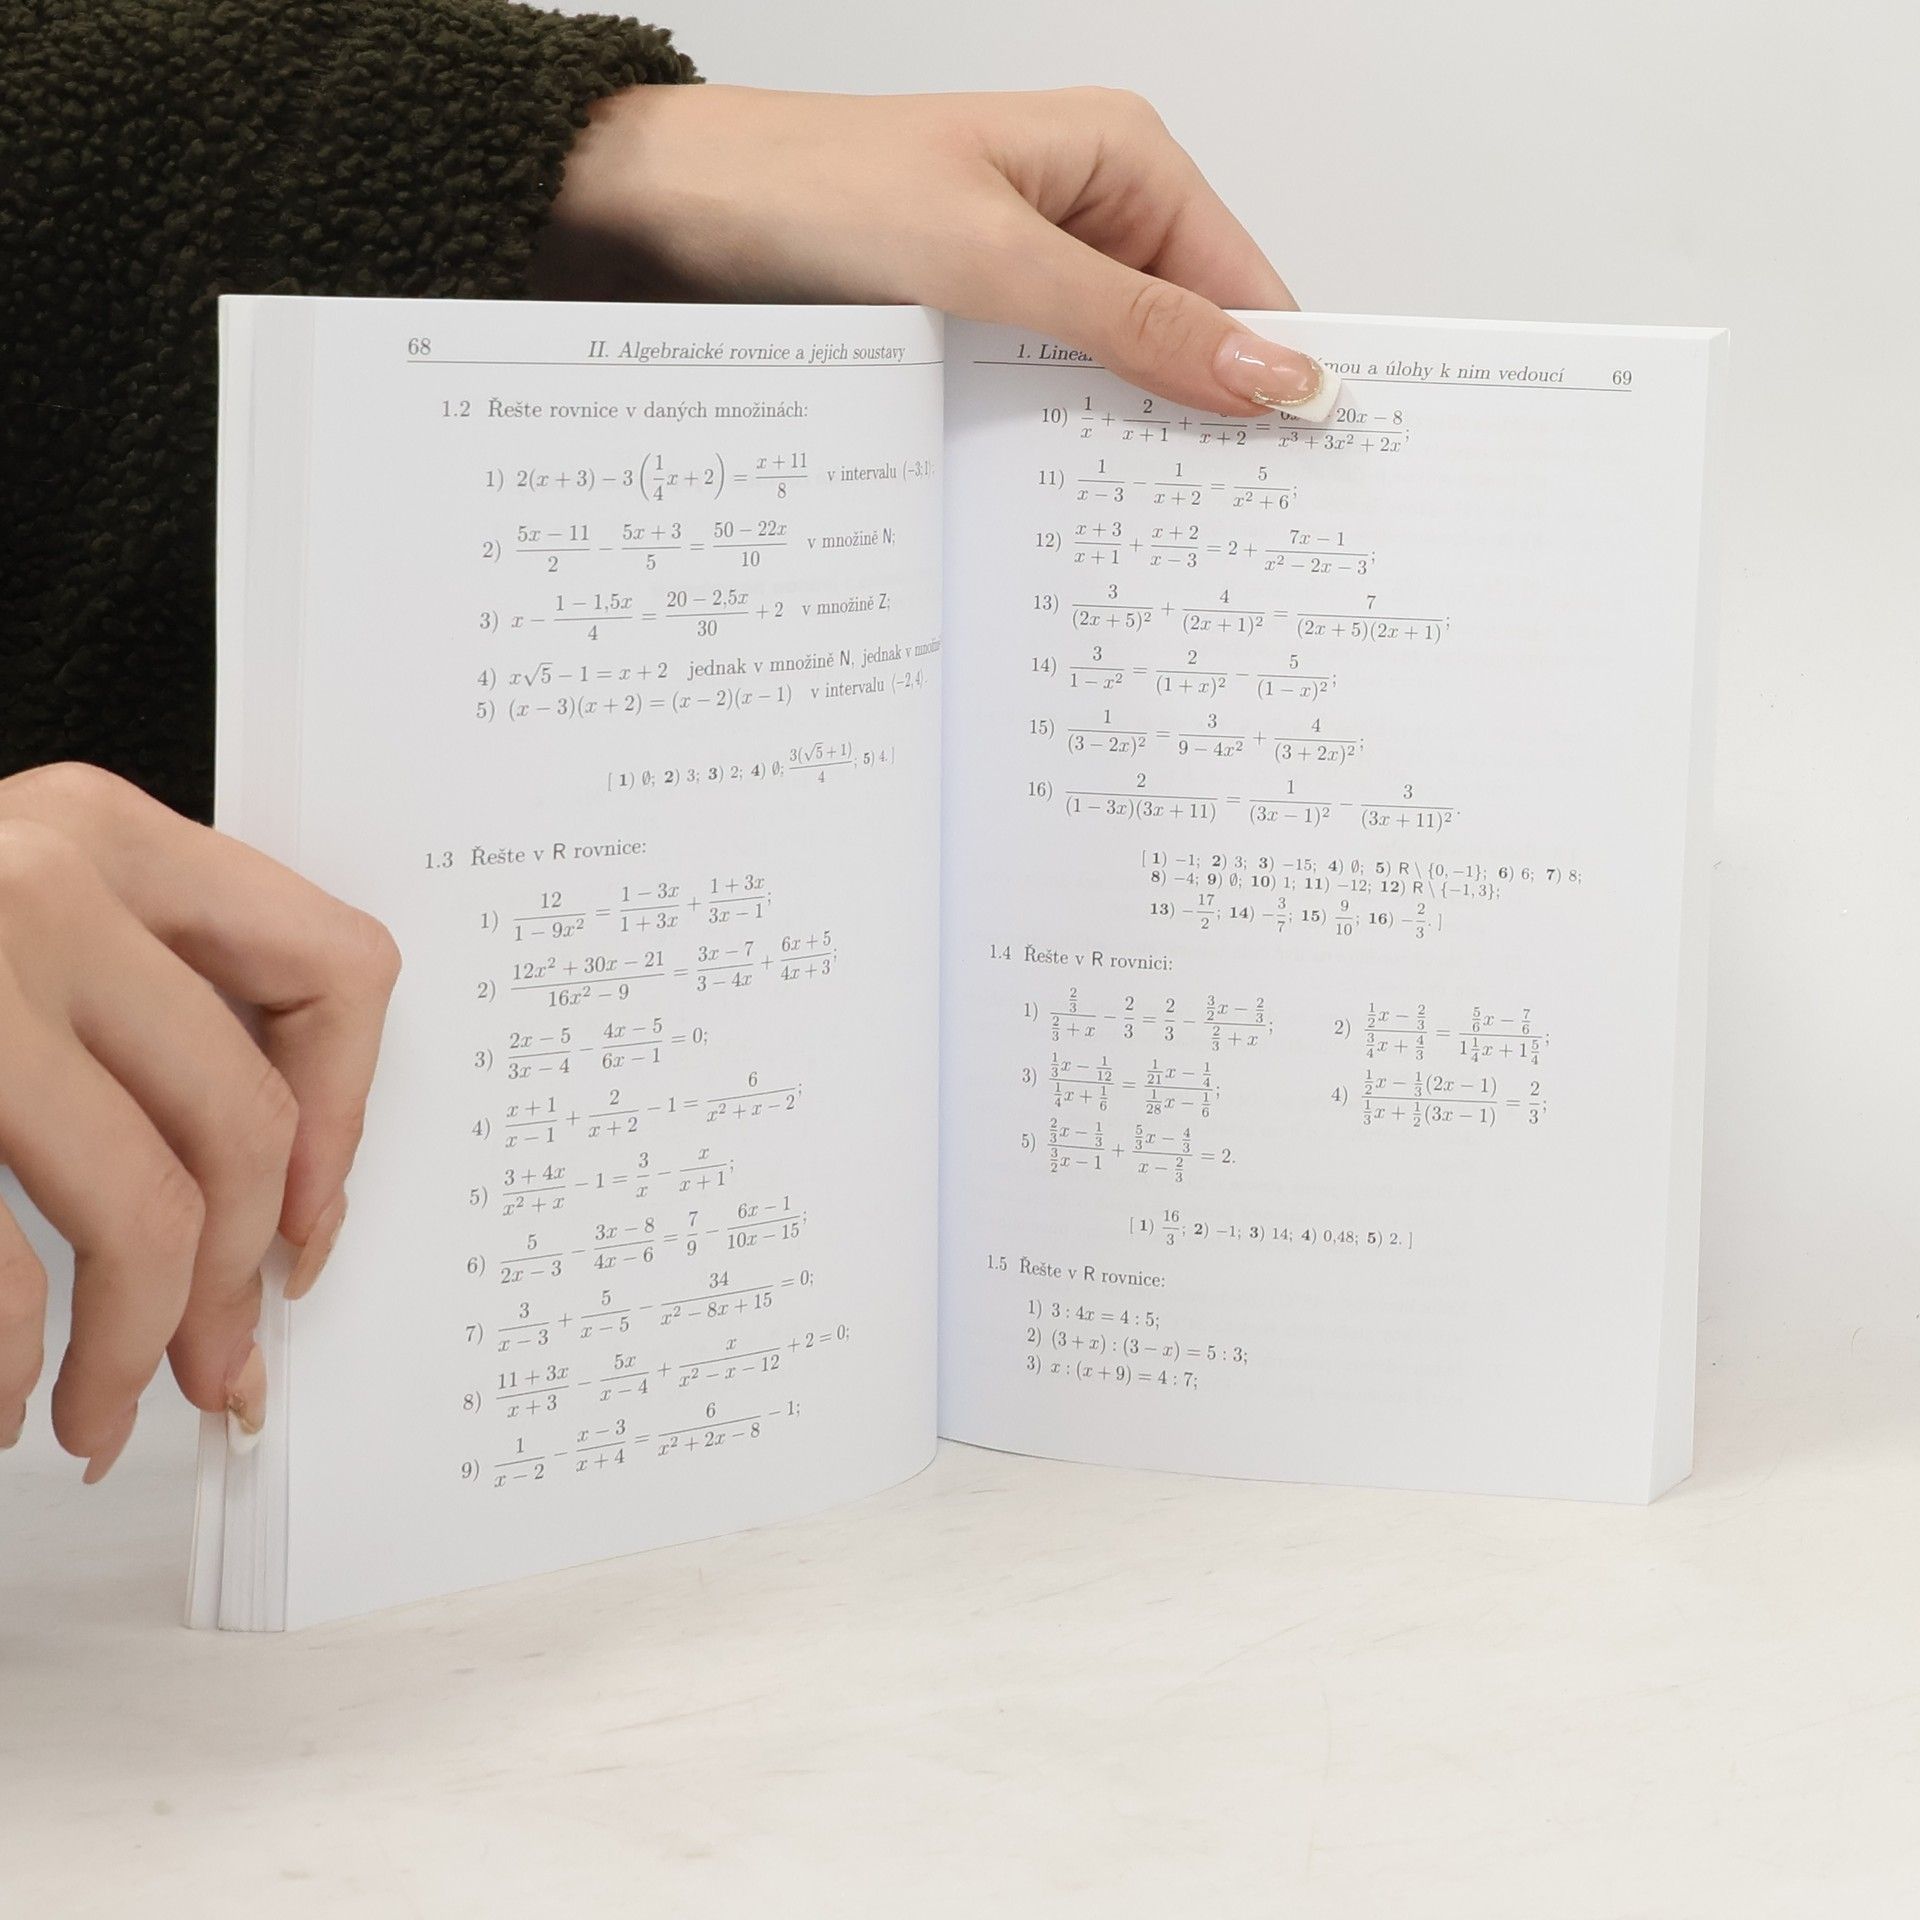 68 II. Algebraické rovnice a jejich soustavy
1.2 Řešte rovnice v daných množinách:
1) 2(x + 3) − 3(1/4 x + 2) = (x + 11)/8 v intervalu (−3; 1);
2) (5x − 11)/2 − (5x + 3)/5 = (50 − 22x)/10 v množině N;
3) x − (1 − 1,5x)/4 = (20 − 2,5x)/30 + 2 v množině Z;
4) x√5 − 1 = x + 2 jednak v množině N, jednak v
5) (x − 3)(x + 2) = (x − 2)(x − 1) v intervalu ⟨−2, 4⟩.
[ 1) ∅; 2) 3; 3) 2; 4) ∅; 3(√5 + 1)/4; 5) 4. ]
1.3 Řešte v R rovnice:
1) 12/(1 − 9x²) = (1 − 3x)/(1 + 3x) + (1 + 3x)/(3x − 1);
2) (12x² + 30x − 21)/(16x² − 9) = (3x − 7)/(3 − 4x) + (6x + 5)/(4x + 3);
3) (2x − 5)/(3x − 4) − (4x − 5)/(6x − 1) = 0;
4) (x + 1)/(x − 1) + 2/(x + 2) − 1 = 6/(x² + x − 2);
5) (3 + 4x)/(x² + x) − 1 = 3/x − x/(x + 1);
6) 5/(2x − 3) − (3x − 8)/(4x − 6) = 7/9 − (6x − 1)/(10x − 15);
7) 3/(x − 3) + 5/(x − 5) − 34/(x² − 8x + 15) = 0;
8) (11 + 3x)/(x + 3) − 5x/(x − 4) + x/(x² − x − 12) + 2 = 0;
9) 1/(x − 2) − (x − 3)/(x + 4) = 6/(x² + 2x − 8) − 1;
1. mou a úlohy k nim vedoucí 69
10) 1/x + 2/(x + 1) + /(x + 2) = 20x − 8/(x³ + 3x² + 2x);
11) 1/(x − 3) − 1/(x + 2) = 5/(x² + 6);
12) (x + 3)/(x + 1) + (x + 2)/(x − 3) = 2 + (7x − 1)/(x² − 2x − 3);
13) 3/(2x + 5)² + 4/(2x + 1)² = 7/((2x + 5)(2x + 1));
14) 3/(1 − x²) = 2/(1 + x)² − 5/(1 − x)²;
15) 1/(3 − 2x)² = 3/(9 − 4x²) + 4/(3 + 2x)²;
16) 2/((1 − 3x)(3x + 11)) = 1/(3x − 1)² − 3/(3x + 11)².
[ 1) −1; 2) 3; 3) −15; 4) ∅; 5) R \ {0, −1}; 6) 6; 7) 8;
8) −4; 9) ∅; 10) 1; 11) −12; 12) R \ {−1, 3};
13) −17/2; 14) −3/7; 15) 9/10; 16) −2/3. ]
1.4 Řešte v R rovnici:
1) (2/3)/(2/3 + x) − 2/3 = 2/3 − (3/2 x − 2/3)/(2/3 + x); 2) (1/2 x − 2/3)/(3/4 x + 4/3) = (5/6 x − 7/6)/(1 1/4 x + 1 5/4);
3) (1/3 x − 1/12)/(1/4 x + 1/6) = (1/21 x − 1/4)/(1/28 x − 1/6); 4) (1/2 x − 1/3(2x − 1))/(1/3 x + 1/2(3x − 1)) = 2/3;
5) (2/3 x − 1/3)/(3/2 x − 1) + (5/3 x − 4/3)/(x − 2/3) = 2.
[ 1) 16/3; 2) −1; 3) 14; 4) 0,48; 5) 2. ]
1.5 Řešte v R rovnice:
1) 3 : 4x = 4 : 5;
2) (3 + x) : (3 − x) = 5 : 3;
3) x : (x + 9) = 4 : 7;